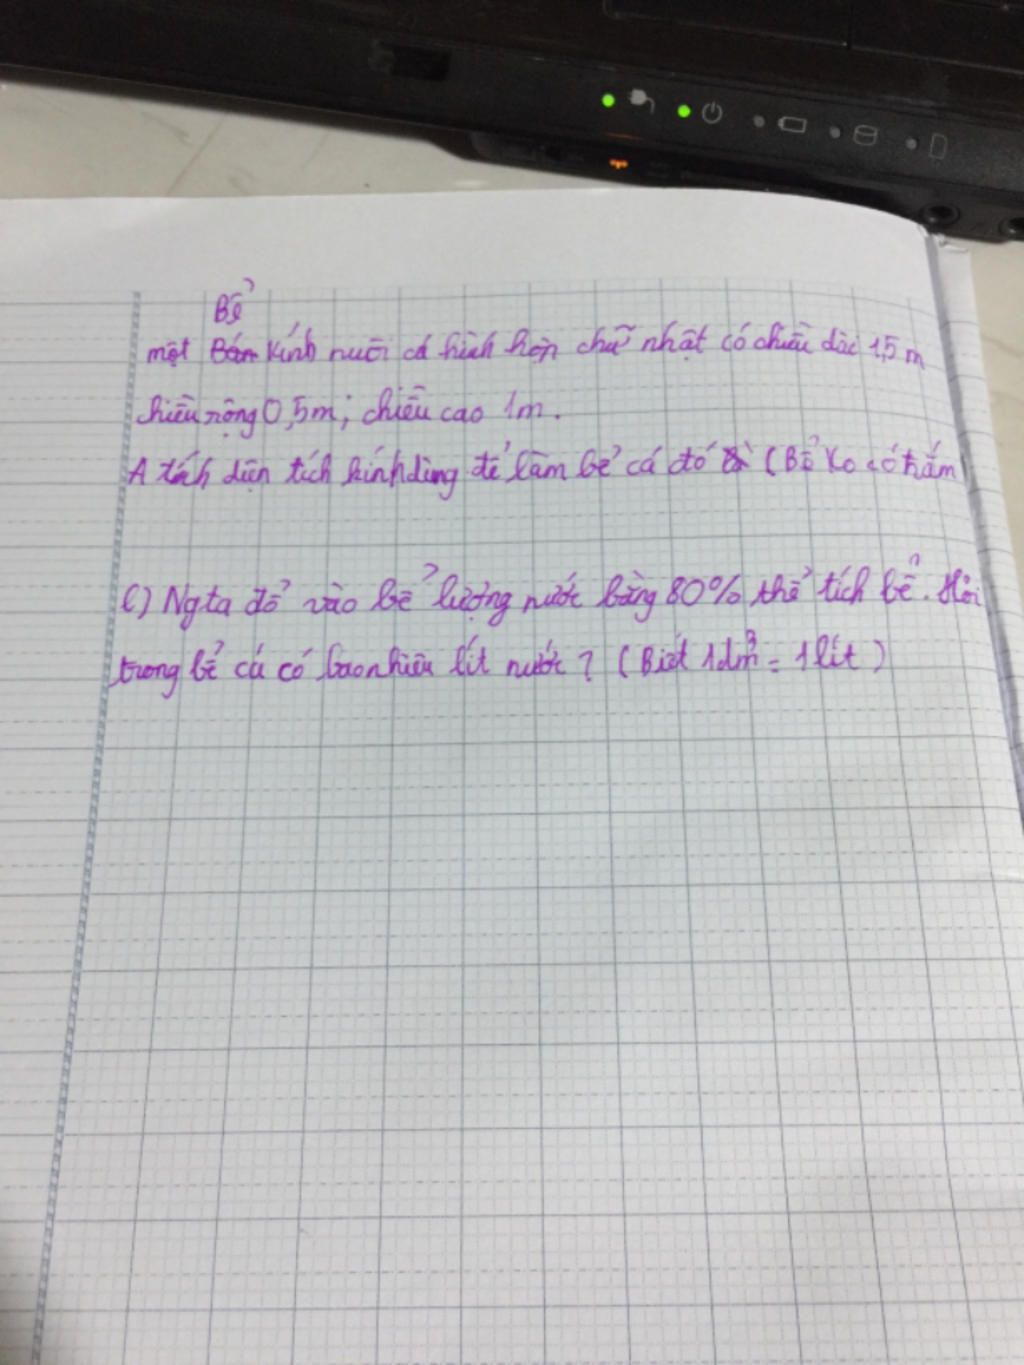 Bể
một Bán kính nuôi cá hình hộp chữ nhật có chiều dài 1,5 m
chiều rộng 0,5m; chiều cao 1m.
A tính diện tích kính dùng để làm bể cá đó (Bể Ko có nắm
C) Ngta đổ vào bể lượng nước bằng 80% thể tích bể. Hỏi
trong bể cá có baonhiêu lít nước? (Biết 1dm³ = 1 lít)